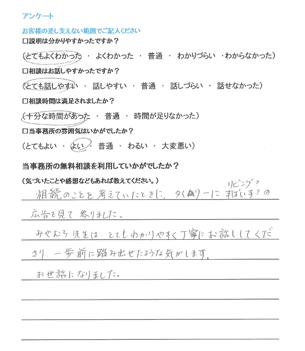 アンケート
お客様の差し支えない範囲でご記入ください
□説明は分かりやすかったですか？
(とてもよくわかった ・ よくわかった ・ 普通 ・ わかりづらい ・わからなかった)
□相談はお話しやすかったですか？
(とても話しやすい ・ 話しやすい ・ 普通 ・ 話しづらい ・ 話せなかった)
□相談時間は満足されましたか？
(十分な時間があった ・ 普通 ・ 時間が足りなかった)
□当事務所の雰囲気はいかがでしたか？
(とてもよい ・ よい ・ 普通 ・ わるい ・ 大変悪い)
当事務所の無料相談を利用していかがでしたか？
(気づいたことや感想などもあれば教えてください。)
リビング？
相続のことを考えていたときに、
広告を見て参りました。
先生は、とてもわかりやすく丁寧にお話ししてくだ
さり、一歩前に踏み出せたような気がします。
お世話になりました。